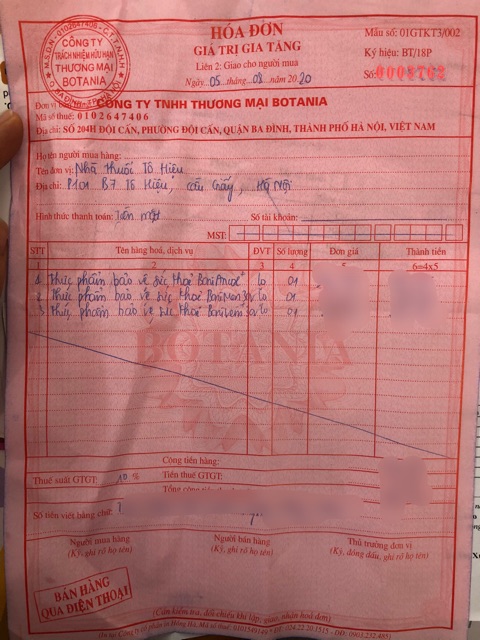 HÓA ĐƠN
GIÁ TRỊ GIA TĂNG
Liên 2: Giao cho người mua
Ngày 05 tháng 08 năm 2020
Mẫu số: 01GTKT3/002
Ký hiệu: BT/18P
Số: 0003762
M.S.D.N: 0102647406 - C.T.T.N.H.H
CÔNG TY
TRÁCH NHIỆM HỮU HẠN
THƯƠNG MẠI
BOTANIA
Q. BA ĐÌNH - TP. HÀ NỘI
Đơn vị bán: CÔNG TY TNHH THƯƠNG MẠI BOTANIA
Mã số thuế: 0102647406
Địa chỉ: SỐ 204H ĐỘI CẤN, PHƯỜNG ĐỘI CẤN, QUẬN BA ĐÌNH, THÀNH PHỐ HÀ NỘI, VIỆT NAM
Họ tên người mua hàng:
Tên đơn vị: Nhà thuốc Tô Hiệu
Địa chỉ: P101 B7 Tô Hiệu, Cầu Giấy, Hà Nội
Hình thức thanh toán: Tiền mặt Số tài khoản:
MST:
STT Tên hàng hoá, dịch vụ ĐVT Số lượng Đơn giá Thành tiền
1 2 3 4 5 6=4x5
1 Thực phẩm bảo vệ sức khoẻ lọ 01
2 Thực phẩm bảo vệ sức khoẻ lọ 01
3 Thực phẩm bảo vệ sức khoẻ lọ 01
BOTANIA
Cộng tiền hàng:
Thuế suất GTGT: 10 % Tiền thuế GTGT:
Tổng cộng tiền
Số tiền viết bằng chữ:
Người mua hàng Người bán hàng Thủ trưởng đơn vị
(Ký, ghi rõ họ tên) (Ký, ghi rõ họ tên) (Ký, đóng dấu, ghi rõ họ tên)
BÁN HÀNG
QUA ĐIỆN THOẠI
(Cần kiểm tra, đối chiếu khi lập, giao, nhận hoá đơn)